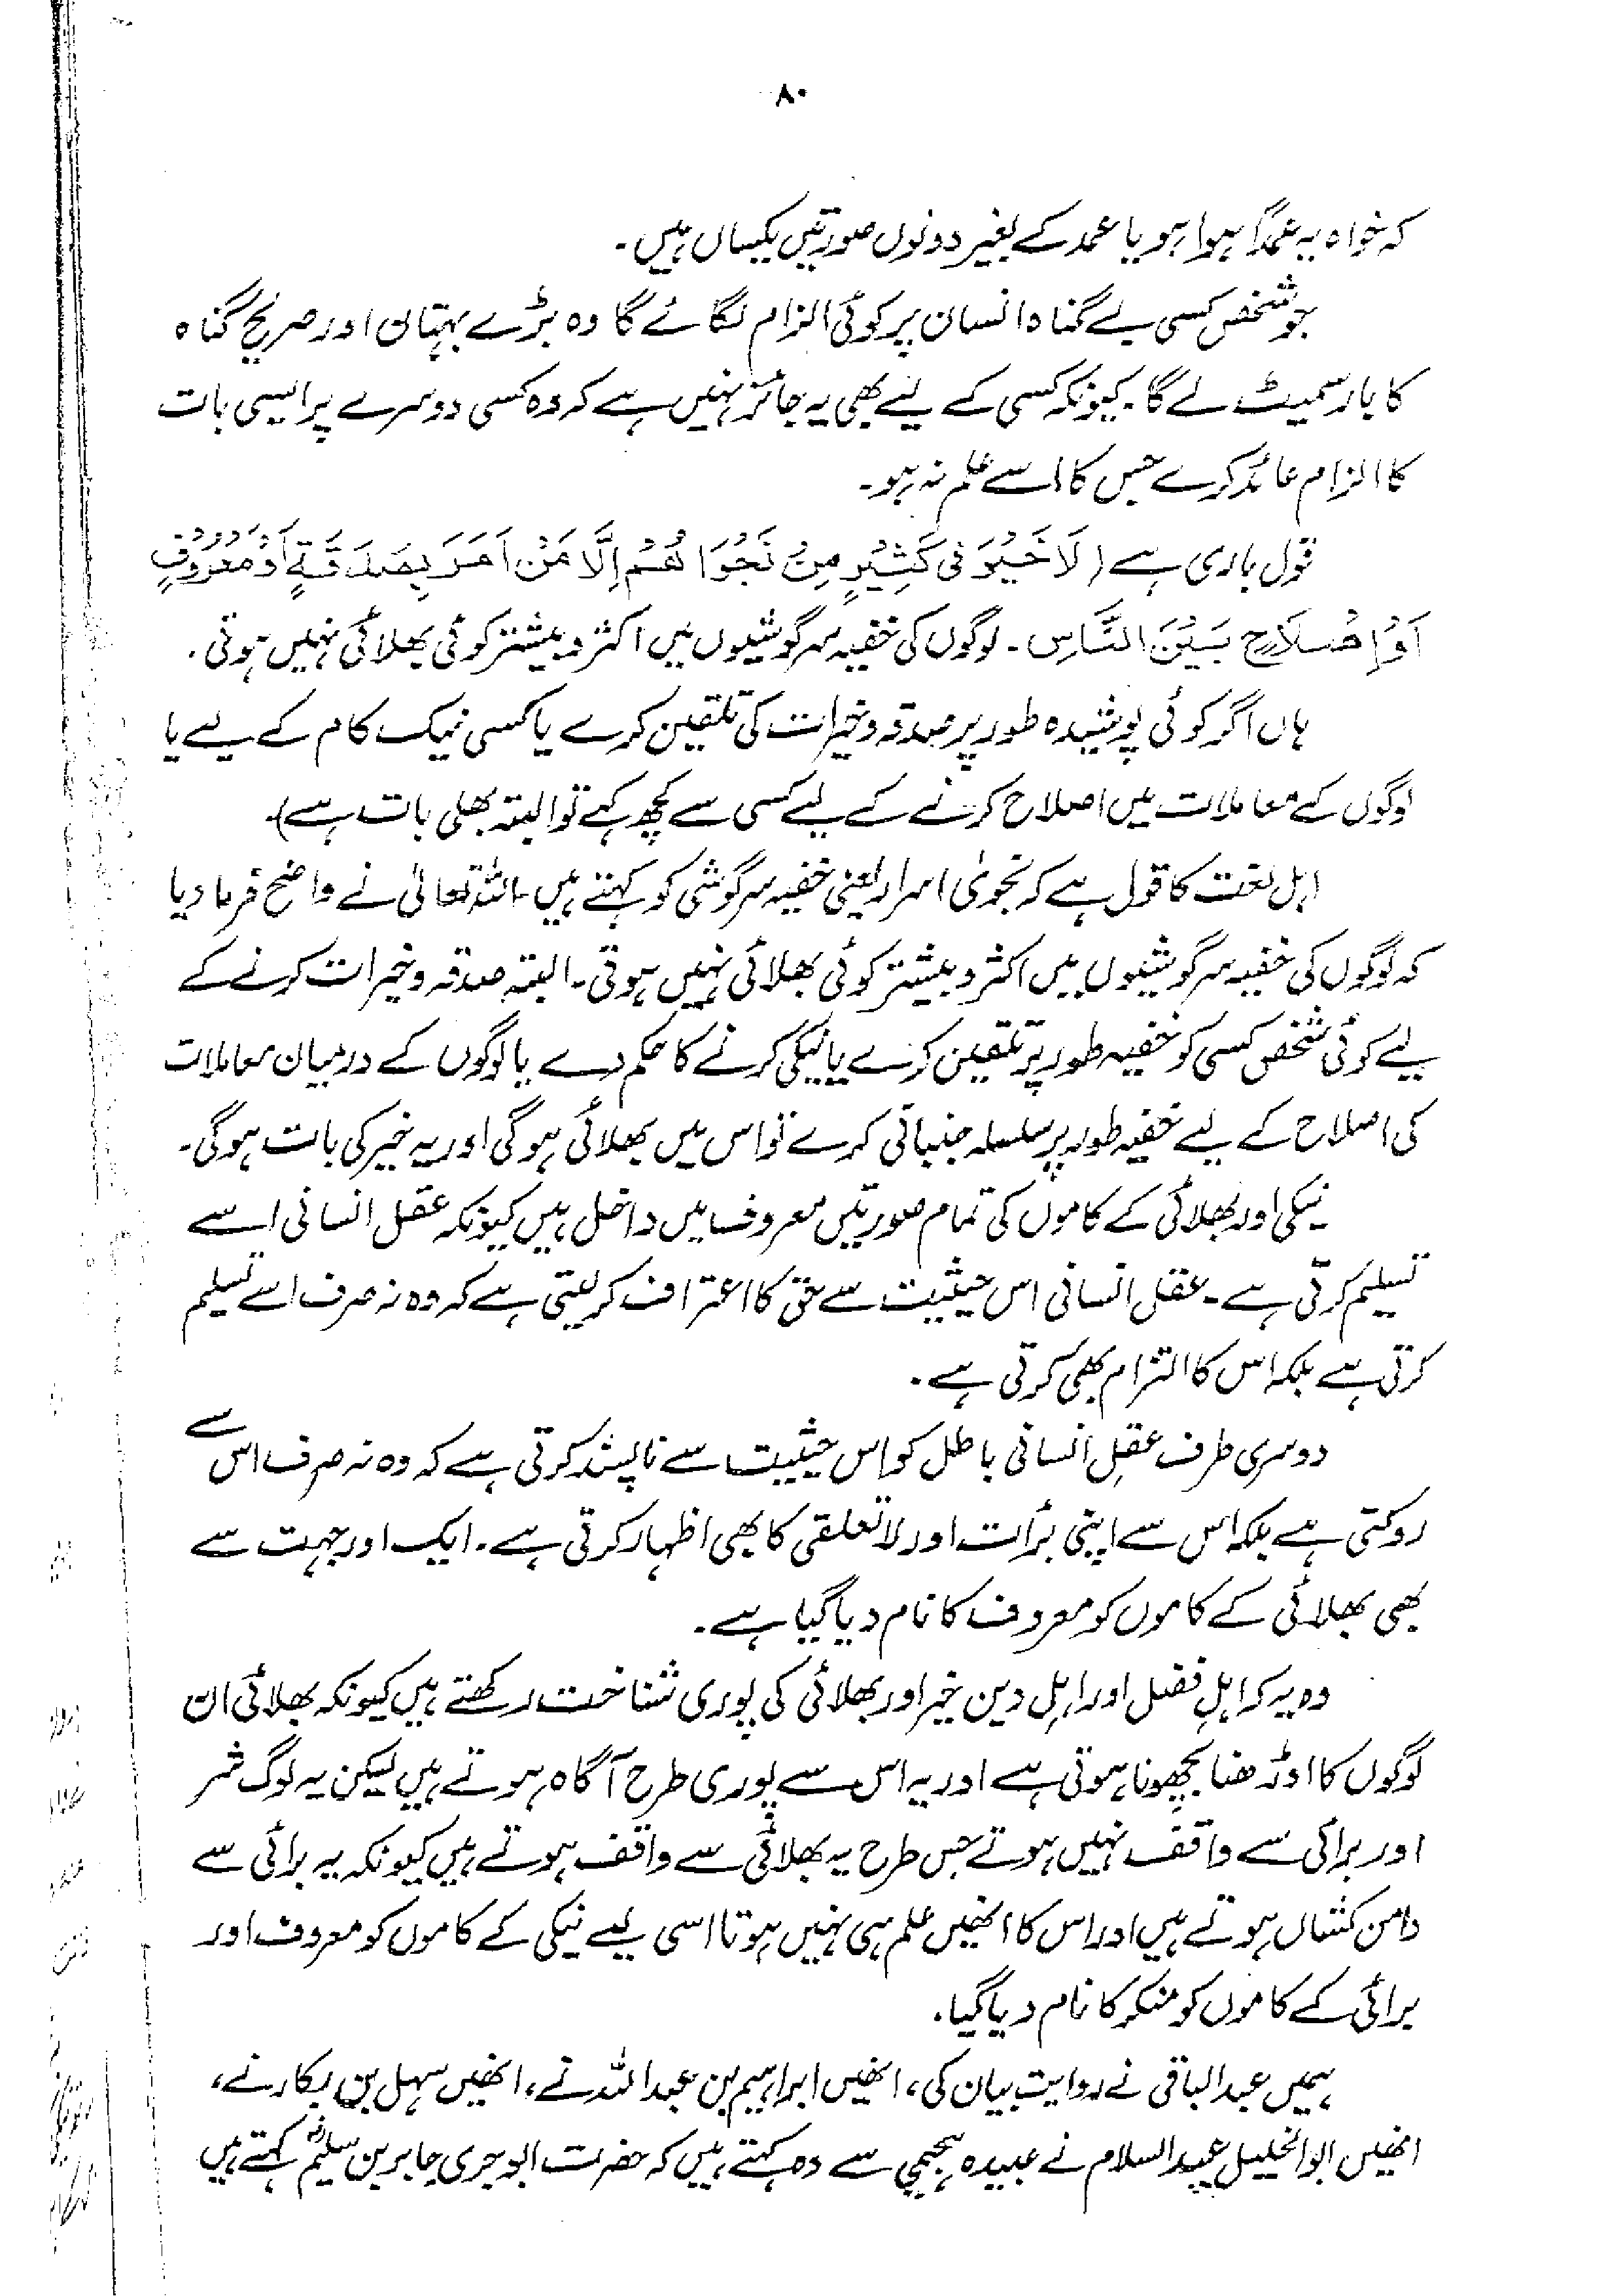 ۸۰
کہ خواہ یہ عمداً ہوا ہو یا عمد کے بغیر دونوں صورتیں یکساں ہیں۔
جو شخص کسی بے گناہ انسان پر کوئی الزام لگائے گا وہ بڑے بہتان اور صریح گناہ
کا بار سمیٹ لے گا۔ کیونکہ کسی کے لیے بھی یہ جائز نہیں ہے کہ وہ کسی دوسرے پر ایسی بات
کا الزام عائد کرے جس کا اسے علم نہ ہو۔
قول باری ہے (لَا خَيْرَ فِی كَثِيْرٍ مِنْ نَجْوَا هُمْ اِلَّا مَنْ اَمَرَ بِصَدَقَةٍ اَوْ مَعْرُوْفٍ
اَوْ اِصْلَاحٍ بَيْنَ النَّاسِ۔ لوگوں کی خفیہ سرگوشیوں میں اکثر و بیشتر کوئی بھلائی نہیں ہوتی۔
ہاں اگر کوئی پوشیدہ طور پر صدقہ و خیرات کی تلقین کرے یا کسی نیک کام کے لیے یا
لوگوں کے معاملات میں اصلاح کرنے کے لیے کسی سے کچھ کہے تو البتہ بھلی بات ہے)۔
اہل لغت کا قول ہے کہ نجویٰ اسرار یعنی خفیہ سرگوشی کو کہتے ہیں۔ اللہ تعالیٰ نے واضح فرما دیا
کہ لوگوں کی خفیہ سرگوشیوں میں اکثر و بیشتر کوئی بھلائی نہیں ہوتی۔ البتہ صدقہ و خیرات کرنے کے
لیے کوئی شخص کسی کو خفیہ طور پر تلقین کرے یا نیکی کرنے کا حکم دے یا لوگوں کے درمیان معاملات
کی اصلاح کے لیے خفیہ طور پر سلسلہ جنبانی کرے تو اس میں بھلائی ہوگی اور یہ خیر کی بات ہوگی۔
نیکی اور بھلائی کے کاموں کی تمام صورتیں معروف میں داخل ہیں کیونکہ عقل انسانی اسے
تسلیم کرتی ہے۔ عقل انسانی اس حیثیت سے حق کا اعتراف کر لیتی ہے کہ وہ نہ صرف اسے تسلیم
کرتی ہے بلکہ اس کا التزام بھی کرتی ہے۔
دوسری طرف عقلِ انسانی باطل کو اس حیثیت سے ناپسند کرتی ہے کہ وہ نہ صرف اس سے
روکتی ہے بلکہ اس سے اپنی برأت اور لاتعلقی کا بھی اظہار کرتی ہے۔ ایک اور جہت سے
بھی بھلائی کے کاموں کو معروف کا نام دیا گیا ہے۔
وہ یہ کہ اہلِ فضل اور اہلِ دین خیر اور بھلائی کی پوری شناخت رکھتے ہیں کیونکہ بھلائی ان
لوگوں کا اوڑھنا بچھونا ہوتی ہے اور یہ اس سے پوری طرح آگاہ ہوتے ہیں لیکن یہ لوگ شر
اور برائی سے واقف نہیں ہوتے جس طرح یہ بھلائی سے واقف ہوتے ہیں کیونکہ یہ برائی سے
دامن کشاں ہوتے ہیں اور اس کا انھیں علم ہی نہیں ہوتا اسی لیے نیکی کے کاموں کو معروف اور
برائی کے کاموں کو منکر کا نام دیا گیا۔
ہمیں عبدالباقی نے روایت بیان کی، انھیں ابراہیم بن عبداللہ نے، انھیں سہل بن بکار نے،
انھیں ابوالخلیل عبدالسلام نے عبیدہ ہجیمی سے وہ کہتے ہیں کہ حضرت ابوجری جابر بن سلیمؓ کہتے ہیں